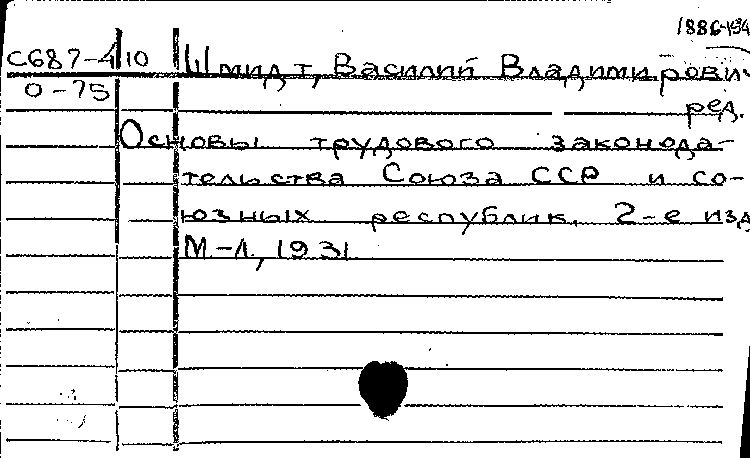 1886-1934
С687-4/10 Шмидт, Василий Владимирович
0-75
ред.
Основы трудового законода-
тельства Союза ССР и со-
юзных республик. 2-е изд
М-Л, 1931